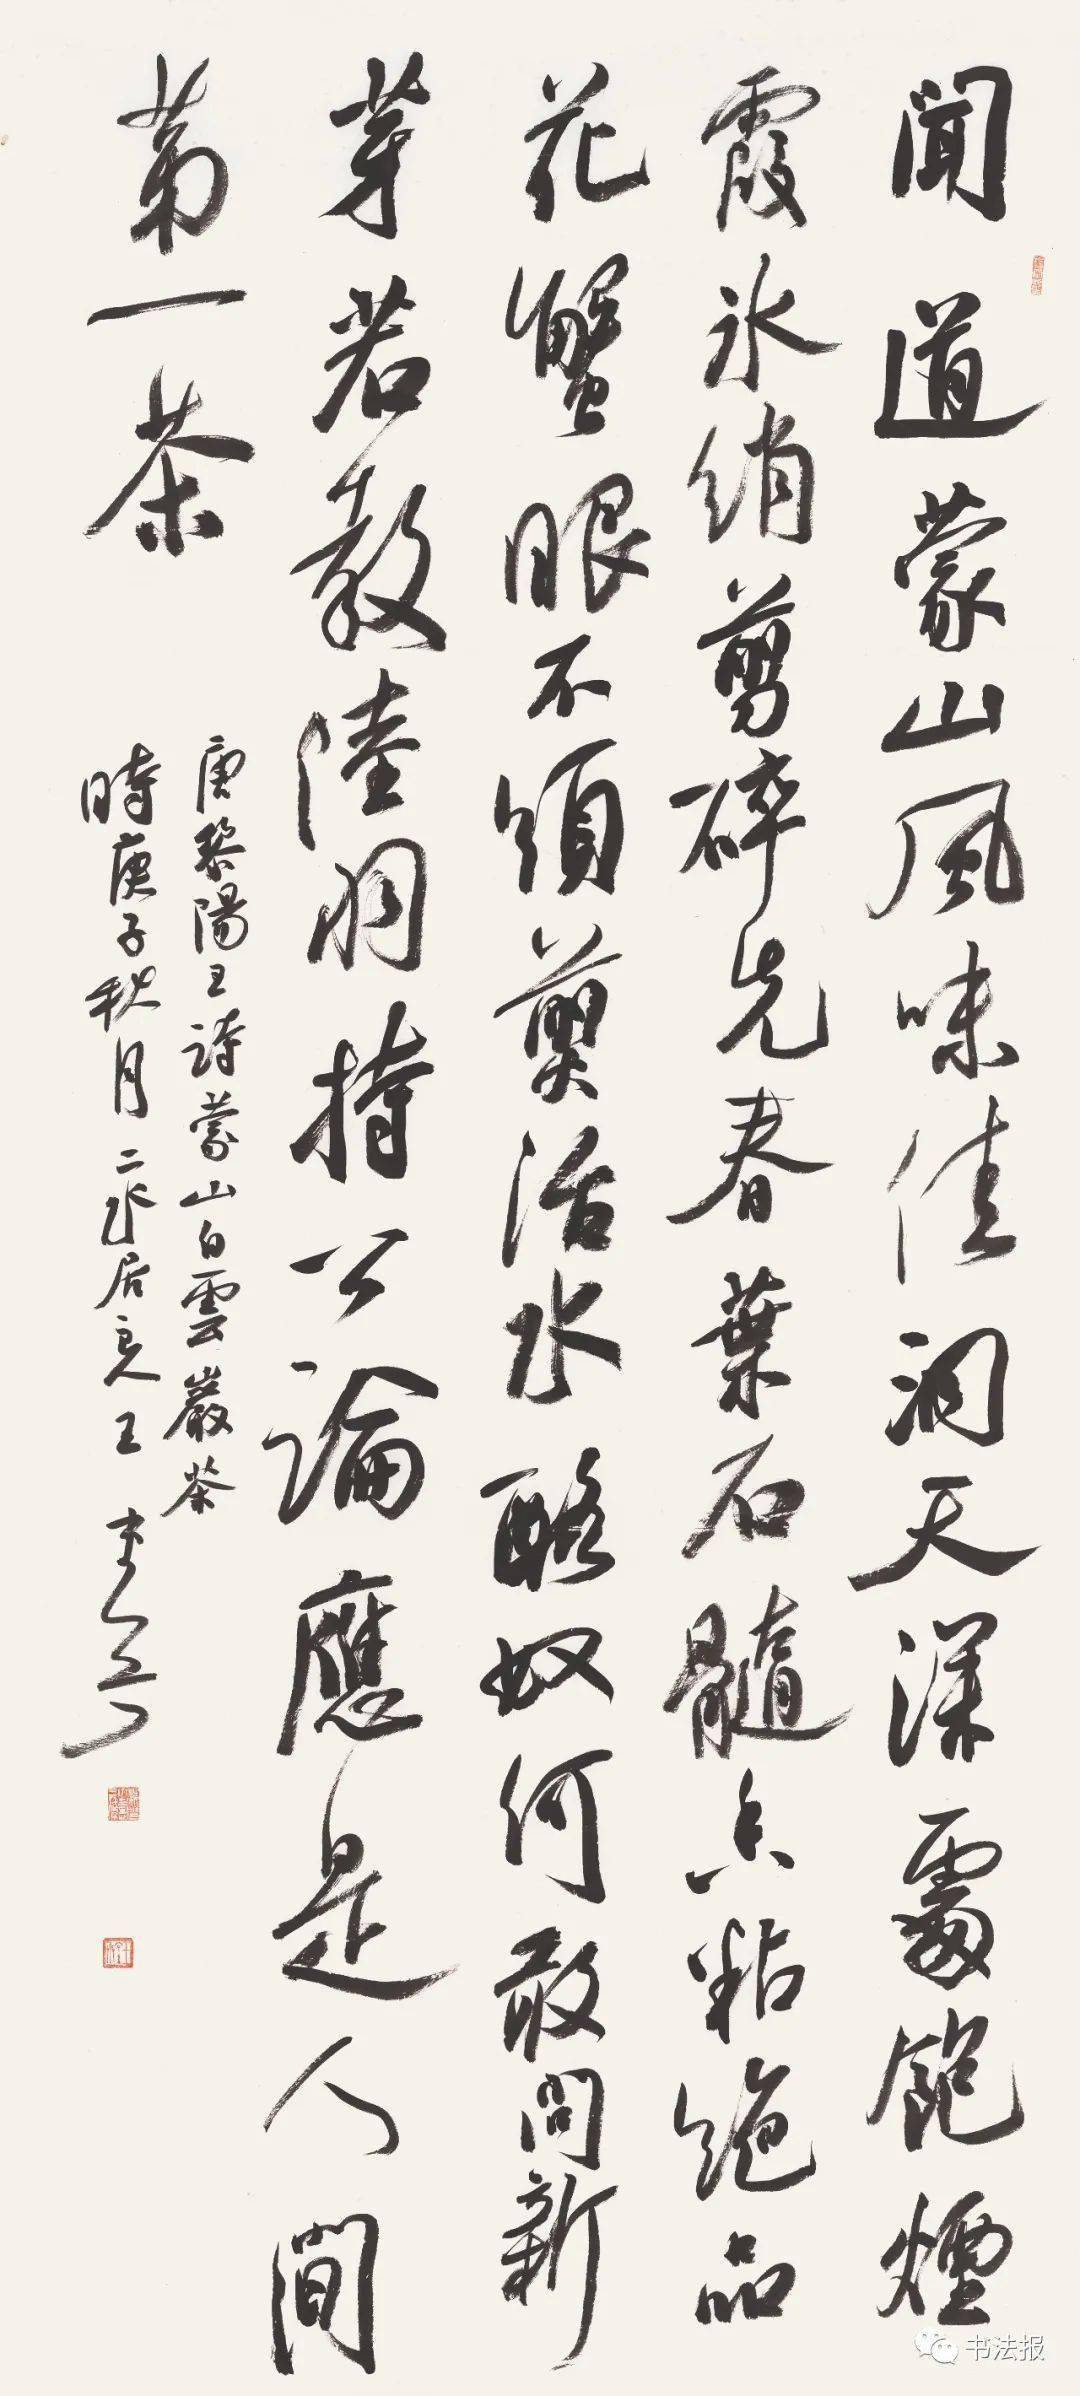 聞道蒙山風味佳洞天深處飽煙
霞冰綃剪碎先春葉石髓香粘絕品
花蟹眼不須煎活水酪奴何敢問新
芽若教陸羽持公論應是人間
第一茶
唐黎陽王詩蒙山白雲巖茶
時庚子秋月二水居
书法报